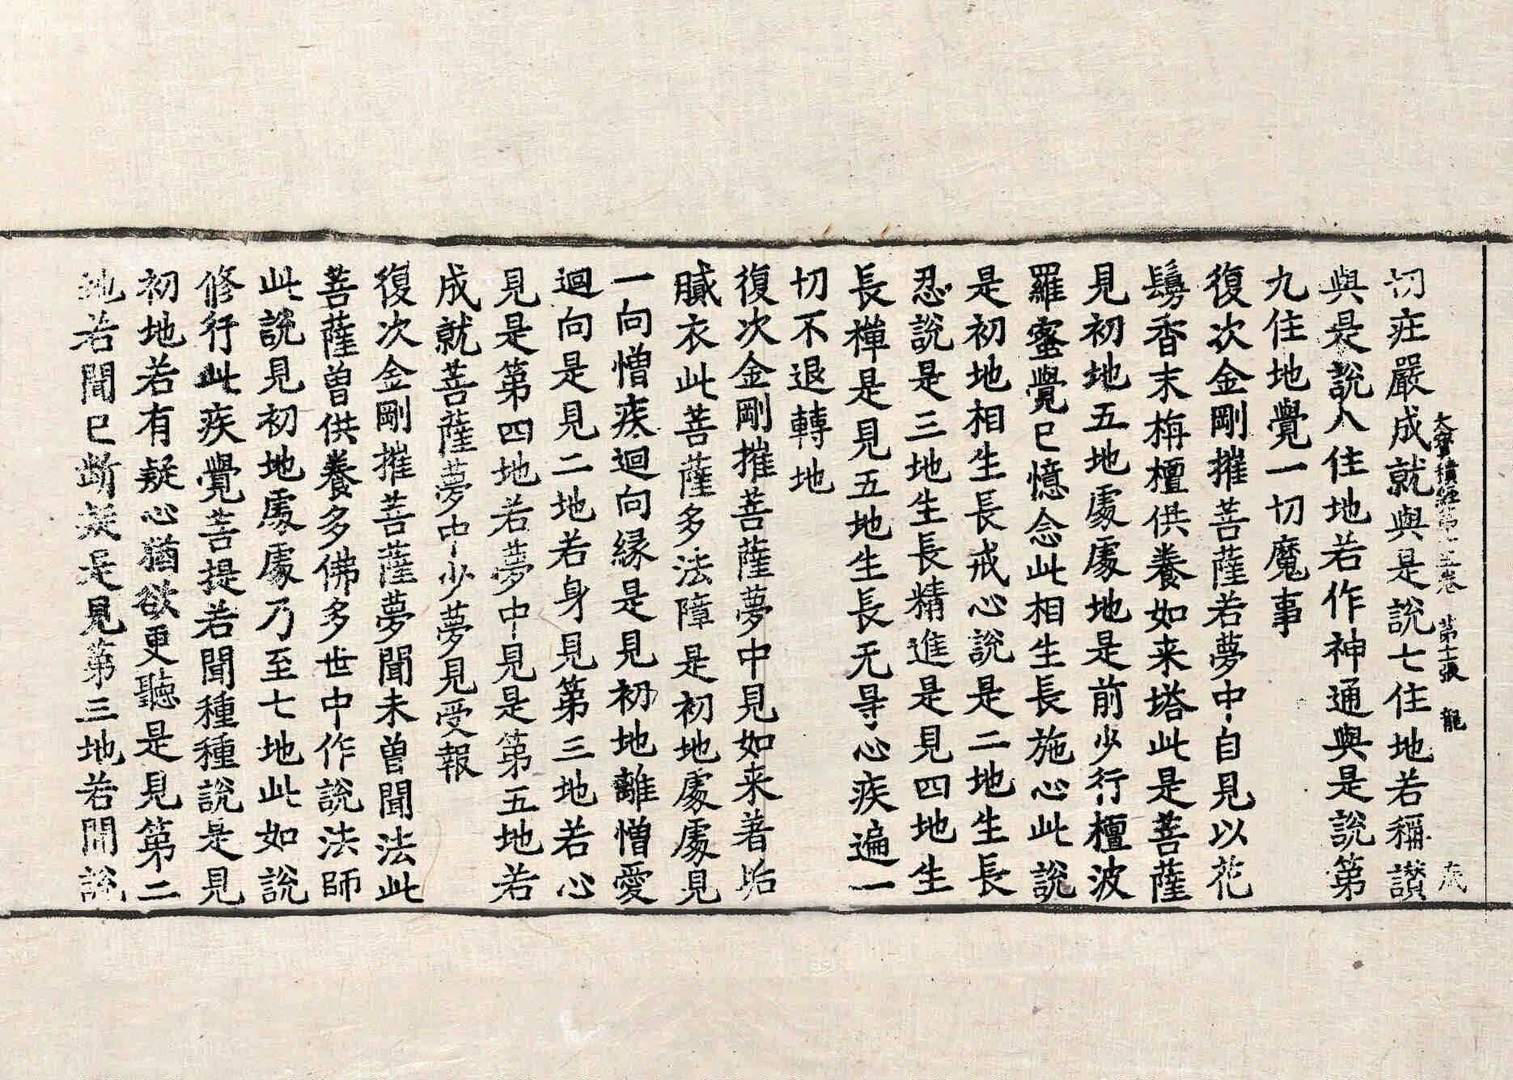 大寶積經第十五卷 第十一張 龍
切疪嚴成就與是說七住地若稱讃
與是說八住地若作神通與是說第
九住地覺一切魔事
復次金剛摧菩薩若夢中自見以花
鬘香末栴檀供養如来塔此是菩薩
見初地五地處處地是前少行檀波
羅蜜覺已憶念此相生長施心此說
是初地相生長戒心說是二地生長
忍說是三地生長精進是見四地生
長禪是見五地生長无㝵心疾遍一
切不退轉地
復次金剛摧菩薩夢中見如来著垢
膩衣此菩薩多法障是初地處處見
一向憎疾迴向縁是見初地離憎愛
迴向是見二地若身見第三地若心
見是第四地若夢中見是第五地若
成就菩薩夢中少夢見受報
復次金剛摧菩薩夢聞未曽聞法此
菩薩曽供養多佛多世中作説法師
此說見初地處處乃至七地此如說
修行此疾覺菩提若聞種種說是見
初地若有疑心猶欲更聽是見第二
地若聞已断疑是見第三地若聞說